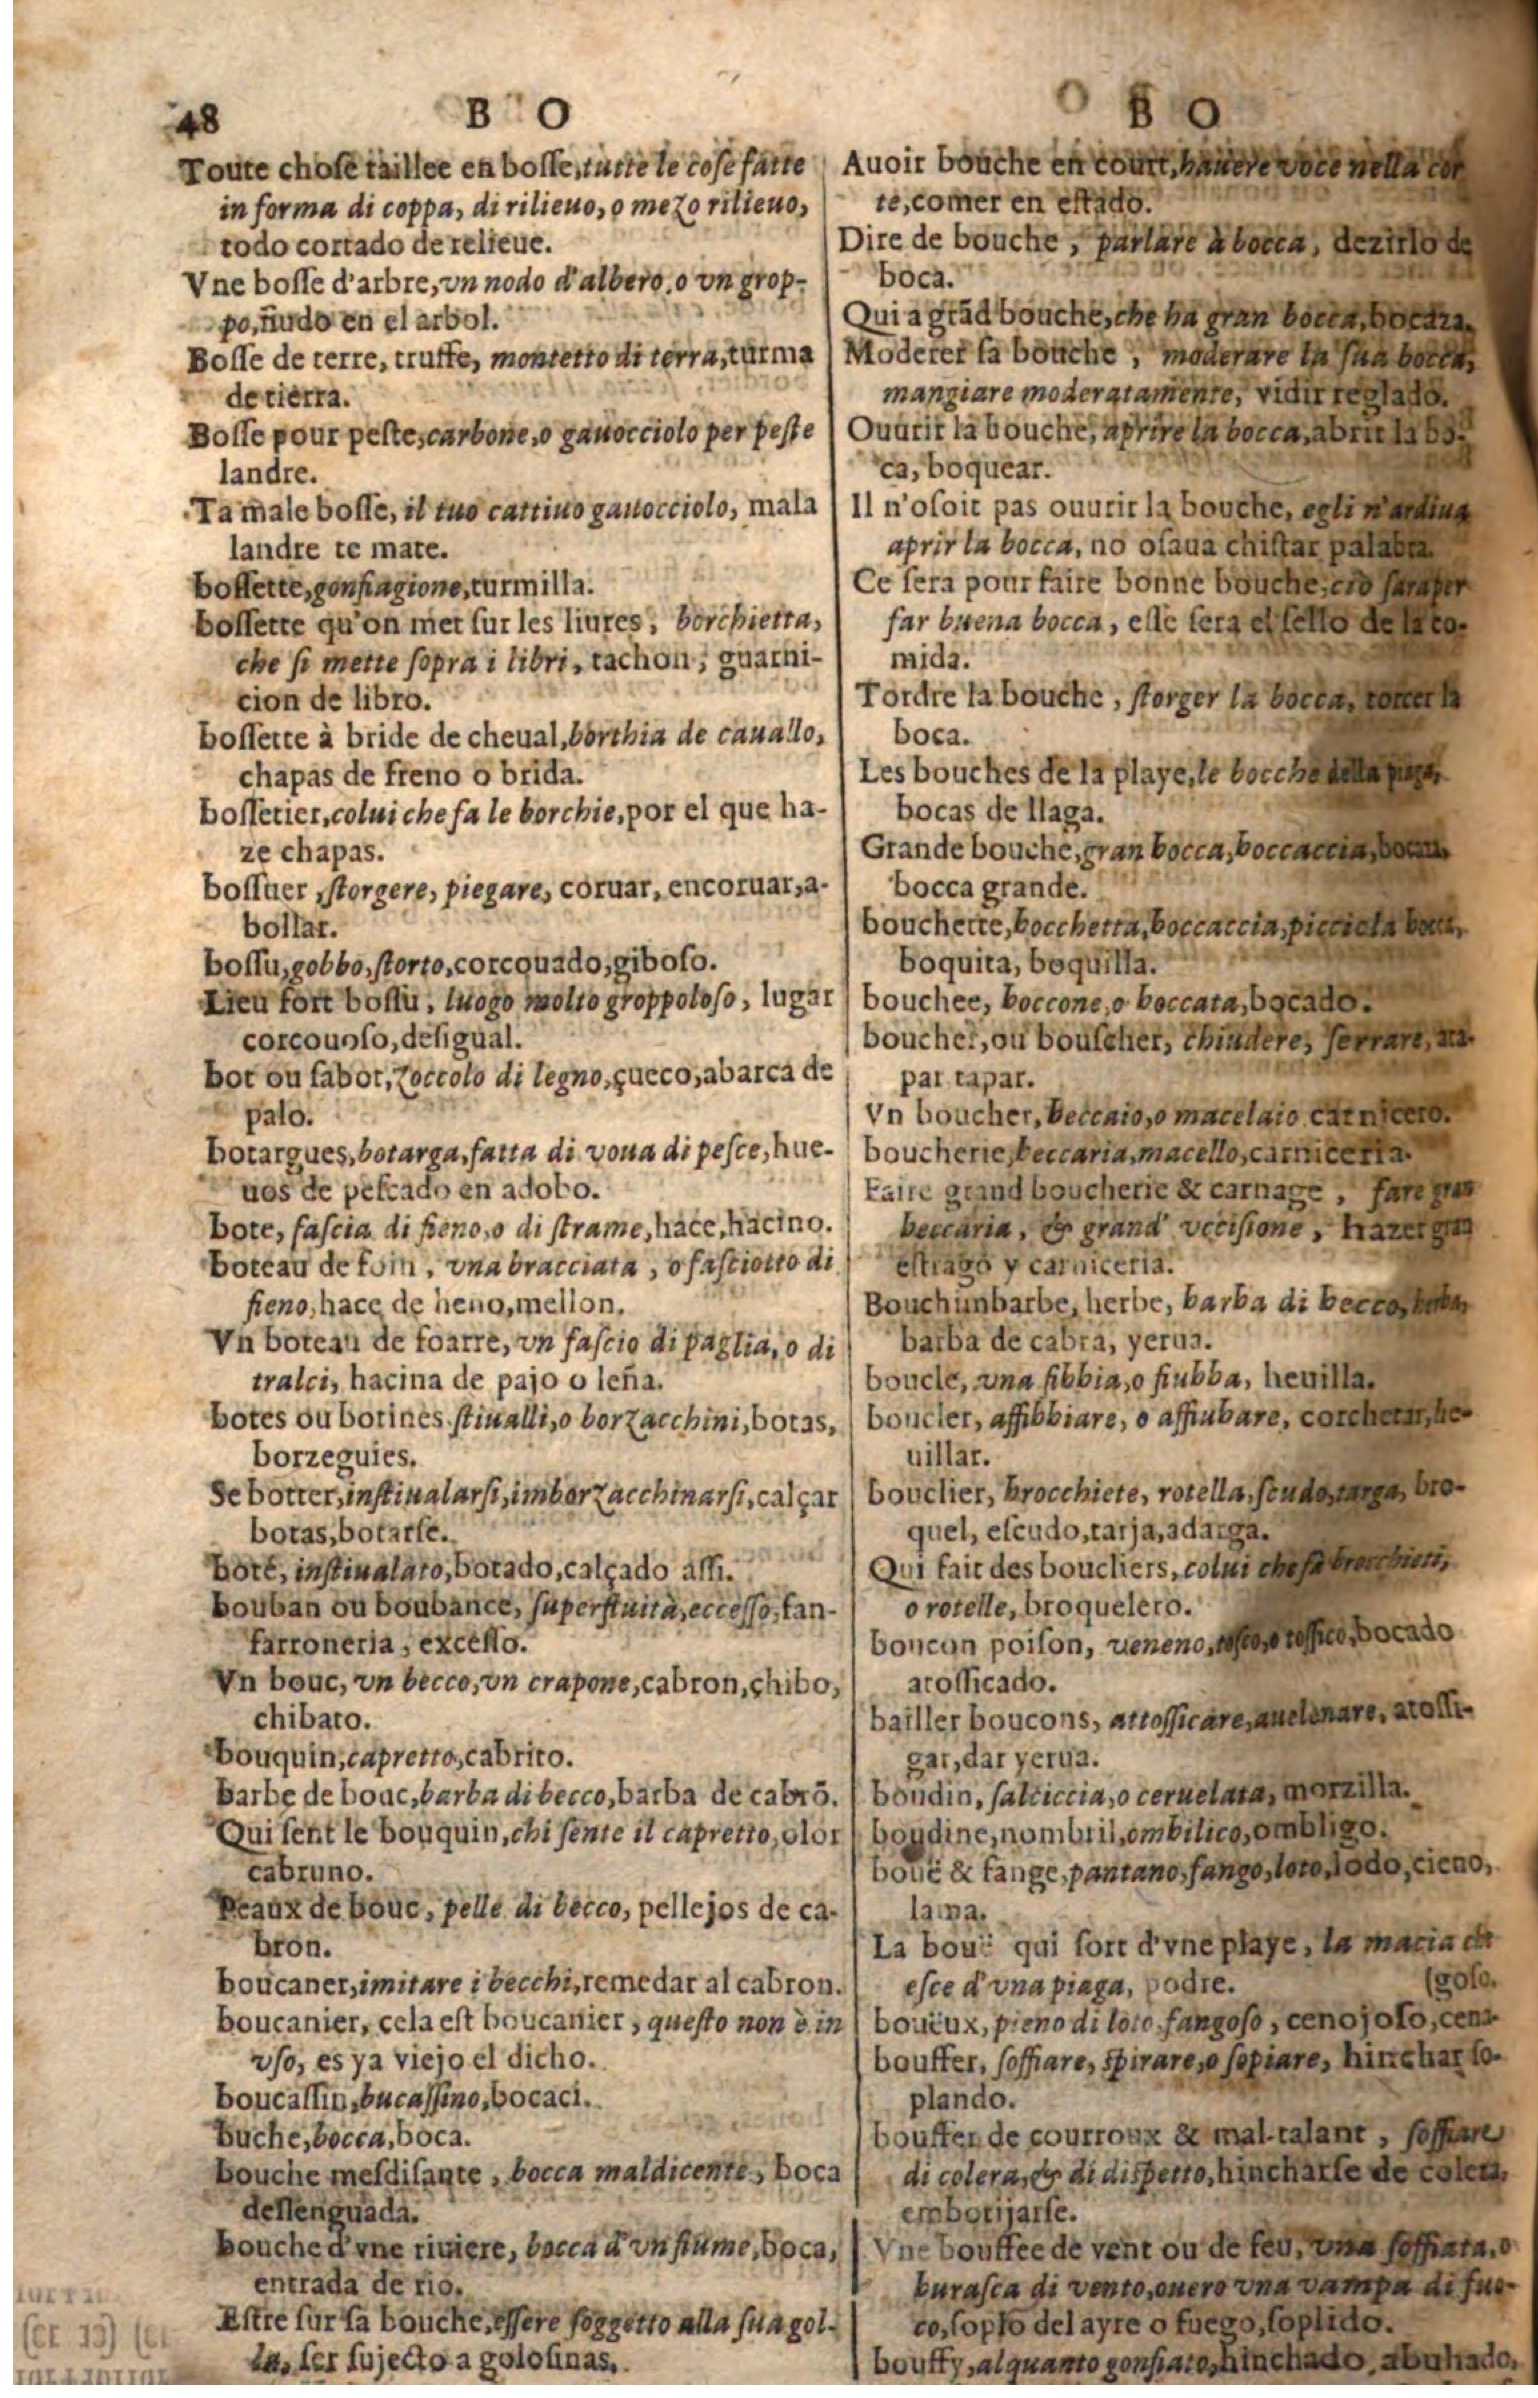 48
B O
Toute chose taillee en bosse, tutte le cose fatte
in forma di coppa, di rilieuo, o mezo rilieuo,
todo cortado de relieue.
Vne bosse d'arbre, vn nodo d'albero, o vn grop-
po, ñudo en el arbol.
Bosse de terre, truffe, montetto di terra, turma
de tierra.
Bosse pour peste, carbone, o gauocciolo per peste
landre.
Ta male bosse, il tuo cattiuo gauocciolo, mala
landre te mate.
bossette, gonfiagione, turmilla.
bossette qu'on met sur les liures, borchietta,
che si mette sopra i libri, tachon, guarni-
cion de libro.
bossette à bride de cheual, borthia de cauallo,
chapas de freno o brida.
bossetier, colui che fa le borchie, por el que ha-
ze chapas.
bossuer, storgere, piegare, coruar, encoruar, a-
bollar.
bossu, gobbo, storto, corcouado, giboso.
Lieu fort bossu, luogo molto groppoloso, lugar
corcouoso, desigual.
bot ou sabot, zoccolo di legno, çueco, abarca de
palo.
botargues, botarga, fatta di voua di pesce, hue-
uos de pescado en adobo.
bote, fascia di fieno, o di strame, hace, hacino.
boteau de foin, vna bracciata, o fasciotto di
fieno, hace de heno, mellon.
Vn boteau de foarre, vn fascio di paglia, o di
tralci, hacina de pajo o leña.
botes ou botines. stiualli, o borzacchini, botas,
borzeguies.
Se botter, instiualarsi, imborzacchinarsi, calçar
botas, botarse.
boté, instiualato, botado, calçado assi.
bouban ou boubance, superfluità, eccesso, fan-
farroneria, excesso.
Vn bouc, vn becco, vn crapone, cabron, chibo,
chibato.
bouquin, capretto, cabrito.
barbe de bouc, barba di becco, barba de cabrõ.
Qui sent le bouquin, chi sente il capretto, olor
cabruno.
Peaux de bouc, pelle di becco, pellejos de ca-
bron.
boucaner, imitare i becchi, remedar al cabron.
boucanier, cela est boucanier, questo non è in
vso, es ya viejo el dicho.
boucassin, bucassino, bocaci.
buche, bocca, boca.
bouche mesdisante, bocca maldicente, boca
deslenguada.
bouche d'vne riuiere, bocca d'vn fiume, boca,
entrada de rio.
Estre sur sa bouche, essere soggetto alla sua gol-
la, ser sujecto a golosinas.
B O
Auoir bouche en court, hauere voce nella cor
te, comer en estado.
Dire de bouche, parlare à bocca, dezirlo de
boca.
Qui a grãd bouche, che ha gran bocca, bocaza.
Moderer sa bouche, moderare la sua bocca,
mangiare moderatamente, vidir reglado.
Ouurir la bouche, aprire la bocca, abrir la bo-
ca, boquear.
Il n'osoit pas ouurir la bouche, egli n'ardiua
aprir la bocca, no osaua chistar palabra.
Ce sera pour faire bonne bouche, ciò sara per
far buena bocca, este sera el sello de la co-
mida.
Tordre la bouche, storger la bocca, torcer la
boca.
Les bouches de la playe, le bocche della piaga,
bocas de llaga.
Grande bouche, gran bocca, boccaccia,
bocca grande.
bouchette, bocchetta, boccaccia, picciola bocca,
boquita, boquilla.
bouchee, boccone, o boccata, bocado.
boucher, ou bouscher, chiudere, serrare, ata-
par tapar.
Vn boucher, beccaio, o macelaio carnicero.
boucherie, beccaria, macello, carniceria.
Faire grand boucherie & carnage, fare gran
beccaria, & grand' vccisione, hazer gran
estrago y carniceria.
Bouchunbarbe, herbe, barba di becco, herba,
barba de cabra, yerua.
boucle, vna fibbia, o fiubba, heuilla.
boucler, affibbiare, o affiubare, corchetar, he-
uillar.
bouclier, brocchiete, rotella, scudo, targa, bro-
quel, escudo, tarja, adarga.
Qui fait des boucliers, colui che fa brocchieti,
o rotelle, broquelero.
boucon poison, veneno, tosco, o tossico, bocado
atossicado.
bailler boucons, attossicare, auelenare, atossi-
gar, dar yerua.
boudin, salciccia, o ceruelata, morzilla.
boudine, nombril, ombilico, ombligo.
bouë & fange, pantano, fango, loto, lodo, cieno,
lama.
La bouë qui sort d'vne playe, la marcia che
esce d'vna piaga, podre. (goso.
bouëux, pieno di loto, fangoso, cenojoso, cena-
bouffer, soffiare, spirare, o sopiare, hinchar so-
plando.
bouffer de courroux & mal-talant, soffiare
di colera, & di dispetto, hincharse de colera,
embotijarse.
Vne bouffee de vent ou de feu, vna soffiata, o
burasca di vento, ouero vna vampa di fuo-
co, soplo del ayre o fuego, soplido.
bouffy, alquanto gonfiato, hinchado, abuhado,